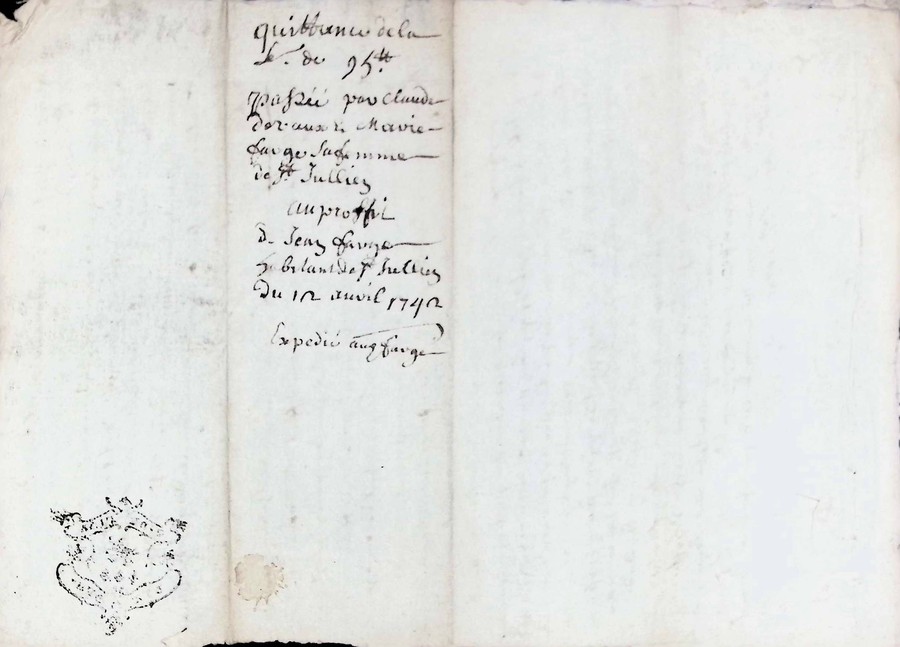 quittance de la
Se. de 95tt
passée par Claude
Devaux & Marie
farge sa femme
de St Jullien
au proffit
de Jean farge
hbitant de St Jullien
Du 12 avril 1742
Expedié audt farge